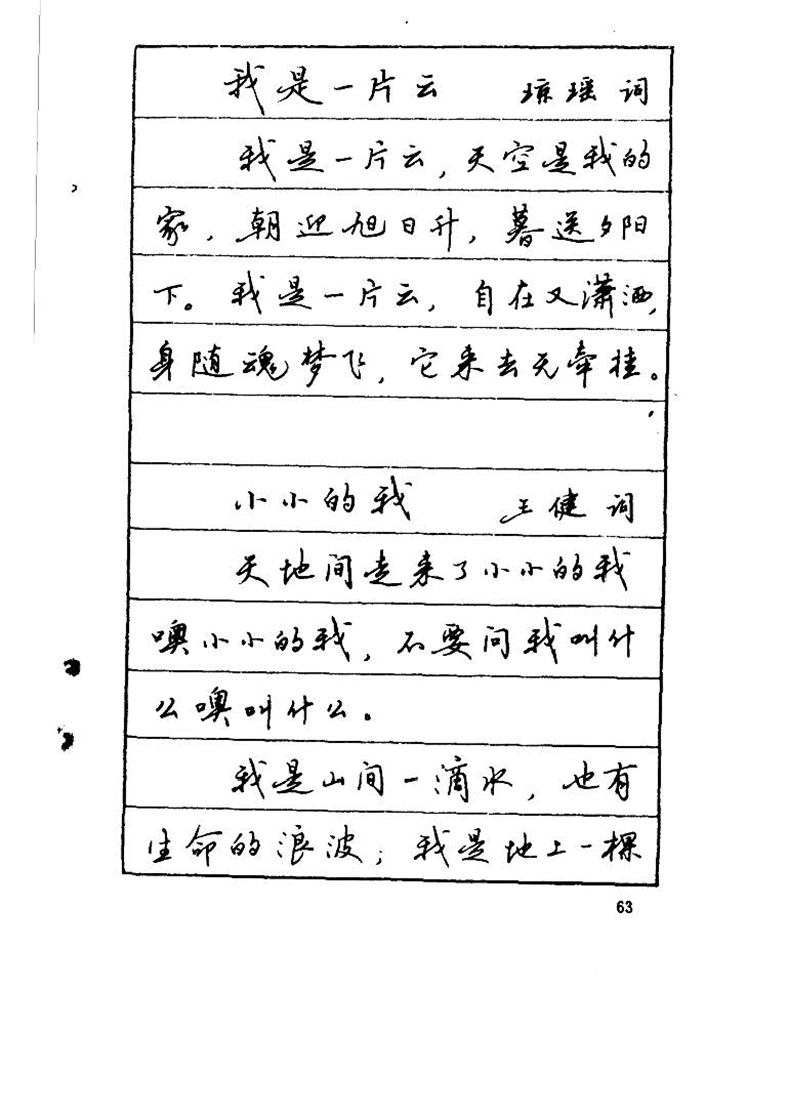 我是一片云 琼瑶 词
我是一片云，天空是我的
家，朝迎旭日升，暮送夕阳
下。我是一片云，自在又潇洒，
身随魂梦飞，它来去无牵挂。
小小的我 王健 词
天地间走来了小小的我
噢小小的我，不要问我叫什
么噢叫什么。
我是山间一滴水，也有
生命的浪波；我是地上一棵
63